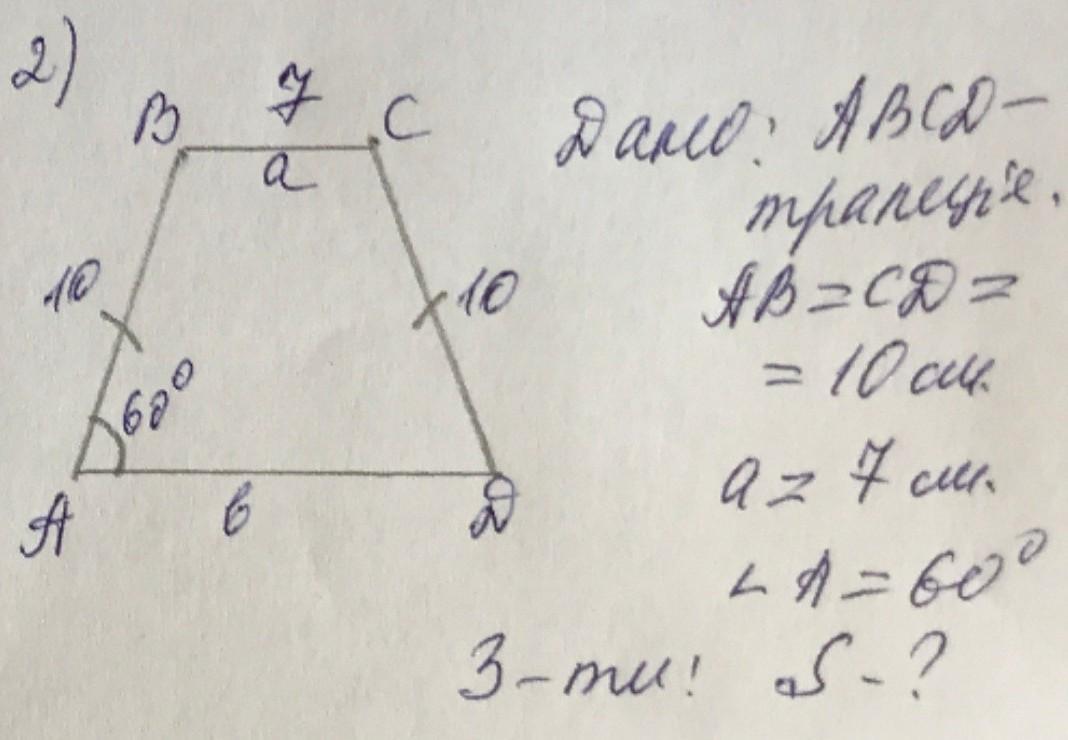 2)
7
B
C
a
10
10
60°
A
в
D
Дано: ABCD –
трапеція.
AB = CD =
= 10 см.
a = 7 см.
∠ A = 60°
З-ти: S - ?